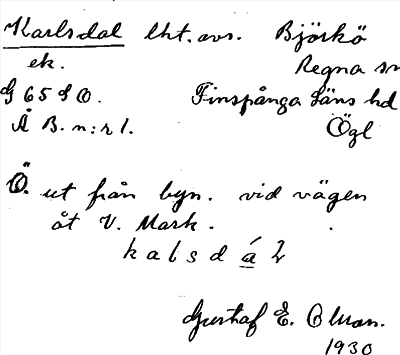 Karlsdal lht. avs. Björkö
ek. Regna sn
G 65 S O. Finspånga läns hd
Å B. n:r 1. Ögl
Ö. ut från byn. vid vägen
åt V. Mark.
k a l s d á l
Gustaf E. Olsson.
1930